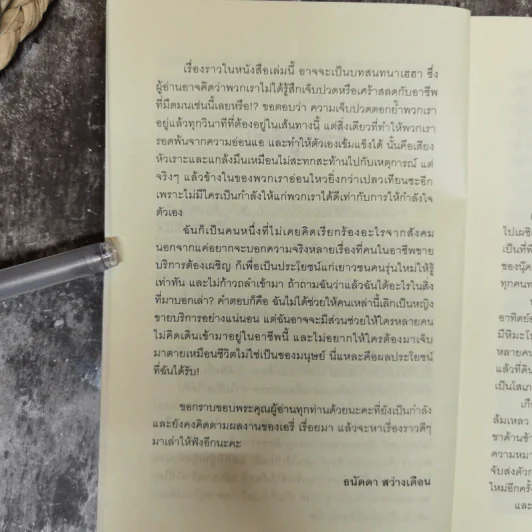 เรื่องราวในหนังสือเล่มนี้ อาจจะเป็นบทสนทนาเฮฮา ซึ่ง
ผู้อ่านอาจคิดว่าพวกเราไม่ได้รู้สึกเจ็บปวดหรือเศร้าสลดกับอาชีพ
ที่มืดมนเช่นนี้เลยหรือ!? ขอตอบว่า ความเจ็บปวดตอกย้ำพวกเรา
อยู่แล้วทุกวินาทีที่ต้องอยู่ในเส้นทางนี้ แต่สิ่งเดียวที่ทำให้พวกเรา
รอดพ้นจากความอ่อนแอ และทำให้ตัวเองเข้มแข็งได้ นั่นคือเสียง
หัวเราะและแกล้งมึนเหมือนไม่สะทกสะท้านไปกับเหตุการณ์ แต่
จริงๆ แล้วข้างในของพวกเราอ่อนไหวยิ่งกว่าเปลวเทียนซะอีก
เพราะไม่มีใครเป็นกำลังให้แก่พวกเราได้ดีเท่ากับการให้กำลังใจ
ตัวเอง
ฉันก็เป็นคนหนึ่งที่ไม่เคยคิดเรียกร้องอะไรจากสังคม
นอกจากแค่อยากจะบอกความจริงหลายเรื่องที่คนในอาชีพขาย
บริการต้องเผชิญ ก็เพื่อเป็นประโยชน์แก่เยาวชนคนรุ่นใหม่ให้รู้
เท่าทัน และไม่ก้าวถลำเข้ามา ถ้าถามฉันว่าแล้วฉันได้อะไรในสิ่ง
ที่มาบอกเล่า? คำตอบก็คือ ฉันไม่ได้ช่วยให้คนเหล่านี้เลิกเป็นหญิง
ขายบริการอย่างแน่นอน แต่ฉันอาจจะมีส่วนช่วยให้ใครหลายคน
ไม่คิดเดินเข้ามาอยู่ในอาชีพนี้ และไม่อยากให้ใครต้องมาเจ็บ
มาตายเหมือนชีวิตไม่ใช่เป็นของมนุษย์ นี่แหละคือผลประโยชน์
ที่ฉันได้รับ!
ขอกราบขอบพระคุณผู้อ่านทุกท่านด้วยนะคะที่ยังเป็นกำลัง
และยังคงติดตามผลงานของเอรี่ เรื่อยมา แล้วจะหาเรื่องราวดีๆ
มาเล่าให้ฟังอีกนะคะ
ธนัดดา สว่างเดือน
ไปเผชิ
เป็นที่พี
ของนุ๊ค
ทุกคนท
อาทิตย์อ
มีหิมะโ
หลายคน
แล้วที่ดิน
เป็นโสเภ
เกี
ล้มเหลว
ขาด้านซ้า
ความหมา
จับส่งตัวก
ใหม่อีกครั้
และ